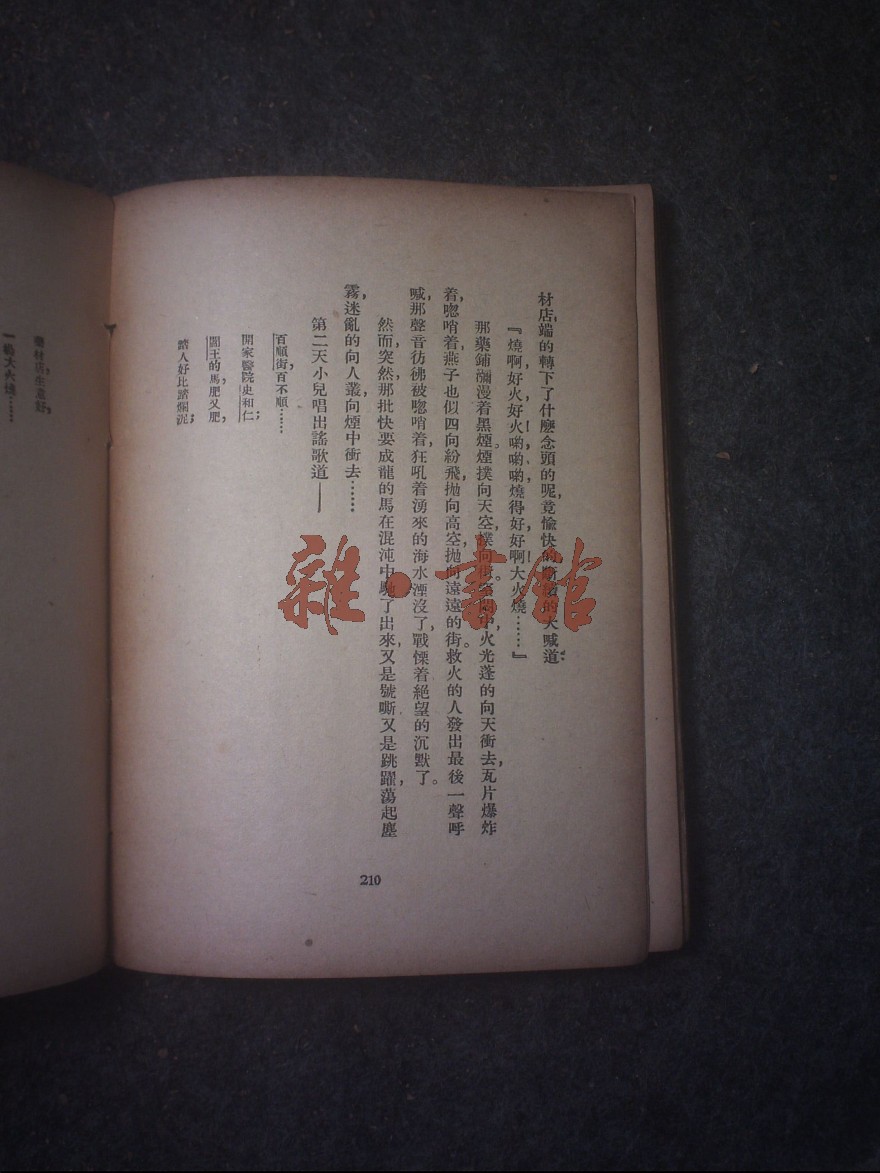 材店,端的轉下了什麼念頭的呢,竟愉快的的大喊道:
『燒啊,好火,好火喲,喲,喲,燒得好,好啊,大火燒……』
那藥鋪瀰漫着黑煙。煙撲向天空,中,火光蓬的向天衝去,瓦片爆炸
着,唿哨着,燕子也似四向紛飛,拋向高空,拋向遠遠的街。救火的人發出最後一聲呼
喊,那聲音彷彿被唿哨着,狂吼着湧來的海水湮沒了,戰慄着絕望的沉默了。
然而,突然那批快要成龍的馬在混沌中馳了出來,又是號嘶又是跳躍,蕩起塵
霧,迷亂的向人叢向煙中衝去……
第二天小兒唱出謠歌道——
百順街百不順……
開家醫院史和仁;
閻王的馬,肥又肥,
踏人好比踏爛泥;
藥材店生意好,
一場大火燒……
210
雜·書館